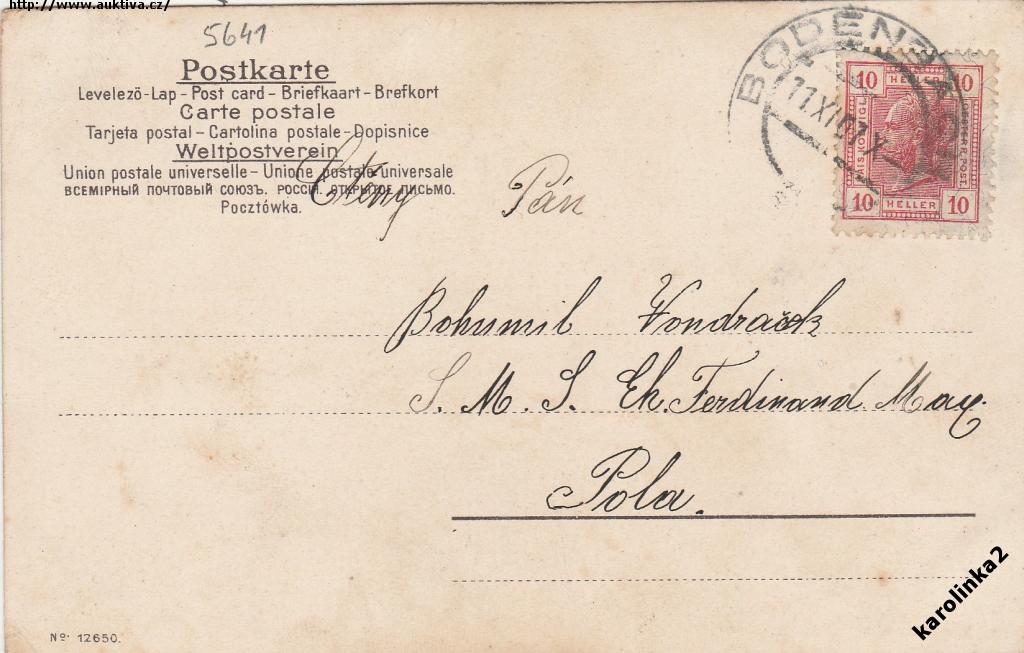 http://www.auktiva.cz/
5641
Postkarte
Levelező-Lap - Post card - Briefkaart - Brefkort
Carte postale
Tarjeta postal - Cartolina postale - Dopisnice
Weltpostverein
Union postale universelle - Unione postale universale
ВСЕМІРНЫЙ ПОЧТОВЫЙ СОЮЗЪ. РОССІЯ. ОТКРЫТОЕ ПИСЬМО.
Pocztówka.
BODENB
11 XI 07 X
10 10
10 HELLER 10
Ctěný Pán
Bohumil Vondráček
S. M. S. Eh. Ferdinand Max.
Pola.
Nº 12650.
karolinka2